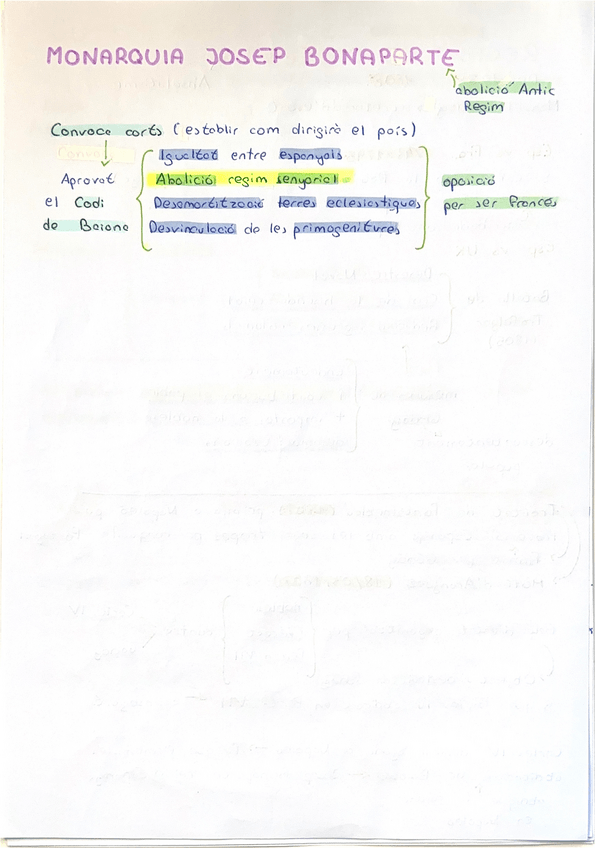 MONARQUIA JOSEP BONAPARTE
abolició Antic
Regim
Convoca corts (establir com dirigirà el país)
Igualtat entre espanyols
Aprovat
el Codi
de Baiona
Abolició regim senyorial
Desamortització terres eclesiastiques
Desvinculació de les primogenitures
oposició
per ser francés